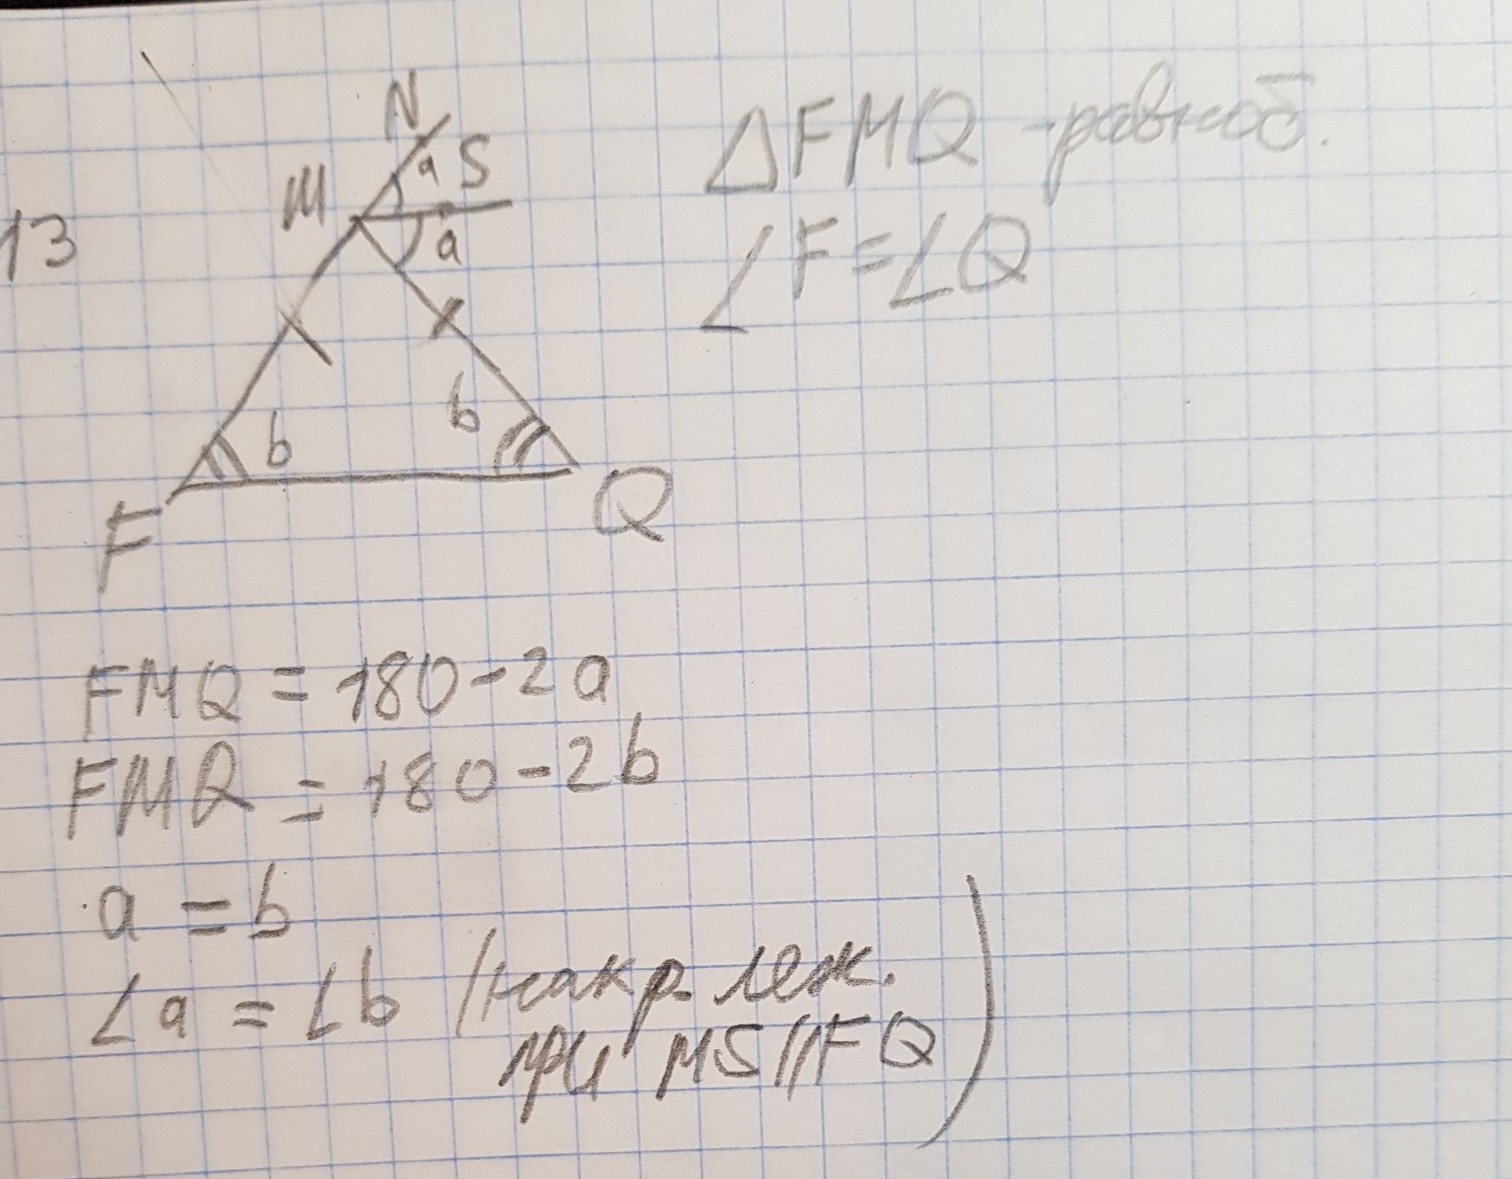 13
N
a S
M
a
b
b
F
Q
△FMQ - равноб.
∠F=∠Q
FMQ = 180-2a
FMQ = 180-2b
a = b
∠a = ∠b (накр. леж.
при MS||FQ)